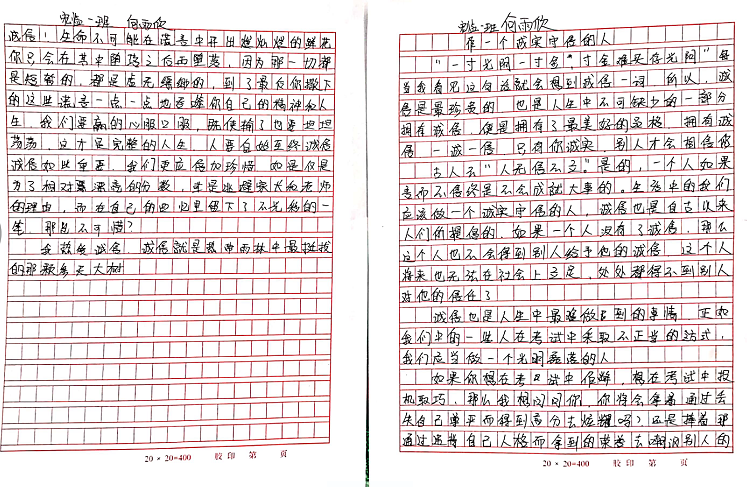 宠临一班 何雨欣
诚信！生命不可能在谎言中开出灿烂的鲜花
你只会在其中堕落之后再堕落，因为那一切都
是短暂的，都是虚无缥缈的，到了最后你撒下
的这些谎言一点一点地吞噬你自己的精神和人
生，我们要赢的心服口服，既使输了也要坦坦
荡荡，这才是完整的人生，人要自始至终诚信
诚信如此重要，我们更应倍加珍惜，如是仅是
为了相对要漂亮的分数，或是逃避家长和老师
的理由，而在自己的心里留下了不光彩的一
笔，那岂不可惜？
我敬畏诚信，诚信就是热带雨林中最挺拔
的那颗参天大树
20×20=400 胶印 第 页
宠临一班 何雨欣
作一个诚实守信的人
“一寸光阴一寸金，寸金难买寸光阴”每
当我看见这句话就会想到诚信一词，所以，诚
信是最珍贵的，也是人生中不可缺少的一部分
拥有诚信，便是拥有了最美好的品格，拥有诚
信一诚一信，只有你诚实，别人才会相信你
古人云“人无信不立”是的，一个人如果
言而不信终是不会成就大事的。生活中的我们
应该做一个诚实守信的人，诚信也是自古以来
人们所提倡的，如果一个人没有了诚信，那么
这个人也不会得到别人给予他的诚信，这个人
将来也无法在社会上立足，处处都得不到别人
对他的信任了
诚信也是人生中最难做到的事情，正如
我们中的一些人在考试中采取不正当的方式，
我们应当做一个光明磊落的人
如果你想在考试中作弊，想在考试中投
机取巧，那么我想问问你，你将会拿着通过丢
失自己尊严而得到高分去炫耀吗？还是捧着那
通过出卖自己人格而拿到的荣誉去讽讽别人的
20×20=400 胶印 第 页